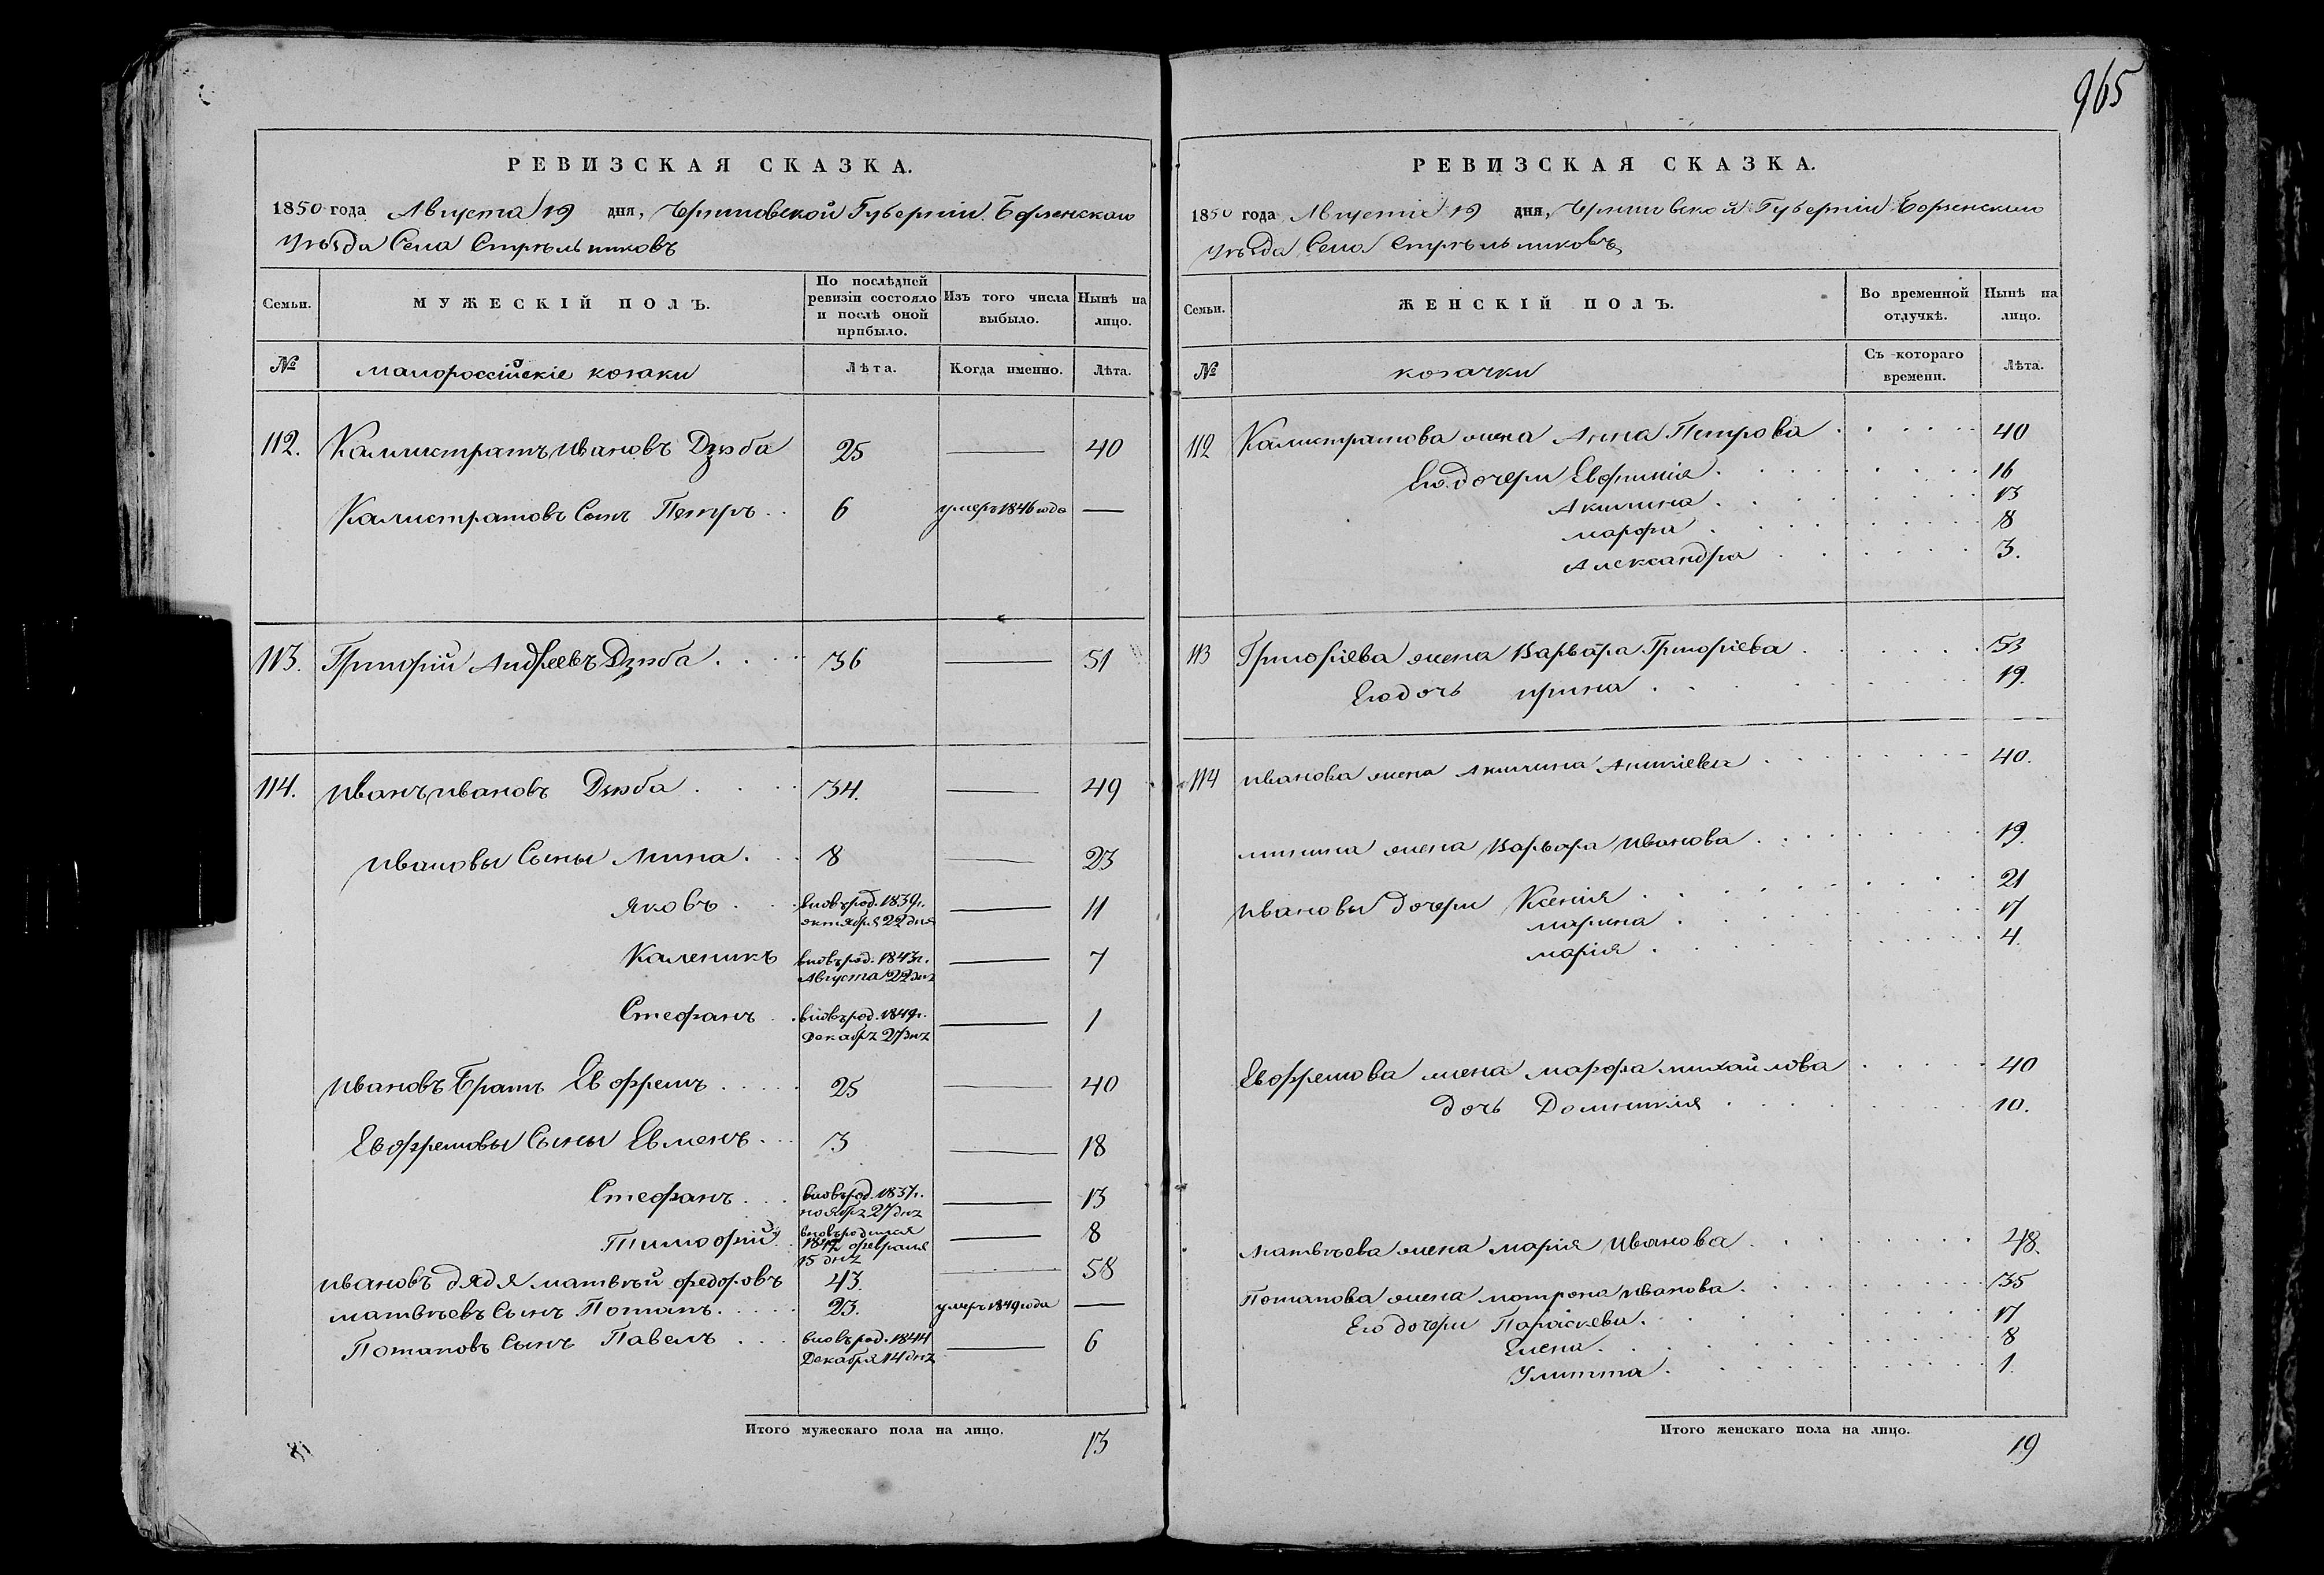 965
РЕВИЗСКАЯ СКАЗКА.
1850 года Августа 19 дня, Черниговской Губерніи Борзенскаго
Уѣзда Села Стрѣльниковъ
Семьи. МУЖЕСКІЙ ПОЛЪ. По послѣдней ревизіи состояло и послѣ оной прибыло. Изъ того числа выбыло. Нынѣ на лицо.
№ малороссійскіе козаки Лѣта. Когда именно. Лѣта.
112. Каллистратъ Ивановъ Дзюба 25 — 40
Калистратовъ Сынъ Петръ 6 умеръ 1846 года —
113. Григорій Андреевъ Дзюба 36 — 51
114. Иванъ Ивановъ Дзюба 34. — 49
Ивановы Сыны Мина 8 — 23
Яковъ вновърод. 1839г. октября 22 дня — 11
Каленикъ вновърод. 1843г. Августа 22 дня — 7
Стефанъ вновърод. 1849г. Декабря 27 дня — 1
Ивановъ Братъ Евфремъ 25 — 40
Евфремовы Сыны Евменъ 3 — 18
Стефанъ вновърод. 1837г. ноября 27 дня — 13
Тимофій вновьродился 1842 февраля 15 дня — 8
Ивановъ дядя матвѣй федоровъ 43. — 58
матвѣевъ Сынъ Потапъ 23. умеръ 1849 года —
Потаповъ Сынъ Павелъ вновърод. 1844 Декабря 14 дня — 6
Итого мужескаго пола на лицо. 13
РЕВИЗСКАЯ СКАЗКА.
1850 года Августа 19 дня, Черниговской Губерніи Борзенскаго
Уѣзда Села Стрѣльниковъ
Семьи. ЖЕНСКІЙ ПОЛЪ. Во временной отлучкѣ. Нынѣ на лицо.
№ козачки Съ котораго времени. Лѣта.
112 Калистратова жена Анна Петрова 40
Его дочери Евфимія 16
Акилина 13
марфа 8
Александра 3.
113 Григоріева жена Варвара Григоріева 53
Его дочь Ирина 19.
114 Иванова жена Акилина 40.
минина жена Варвара Иванова 19.
Ивановы дочери Ксенія 21
марина 17
марія 4.
Евфремова жена марфа михайлова 40
дочь Домникія 10.
Матвѣева жена марія Иванова 48.
Потапова жена мотрона Иванова 35
Его дочери Параскева 17
Елена 8
Улитта 1.
Итого женскаго пола на лицо. 19